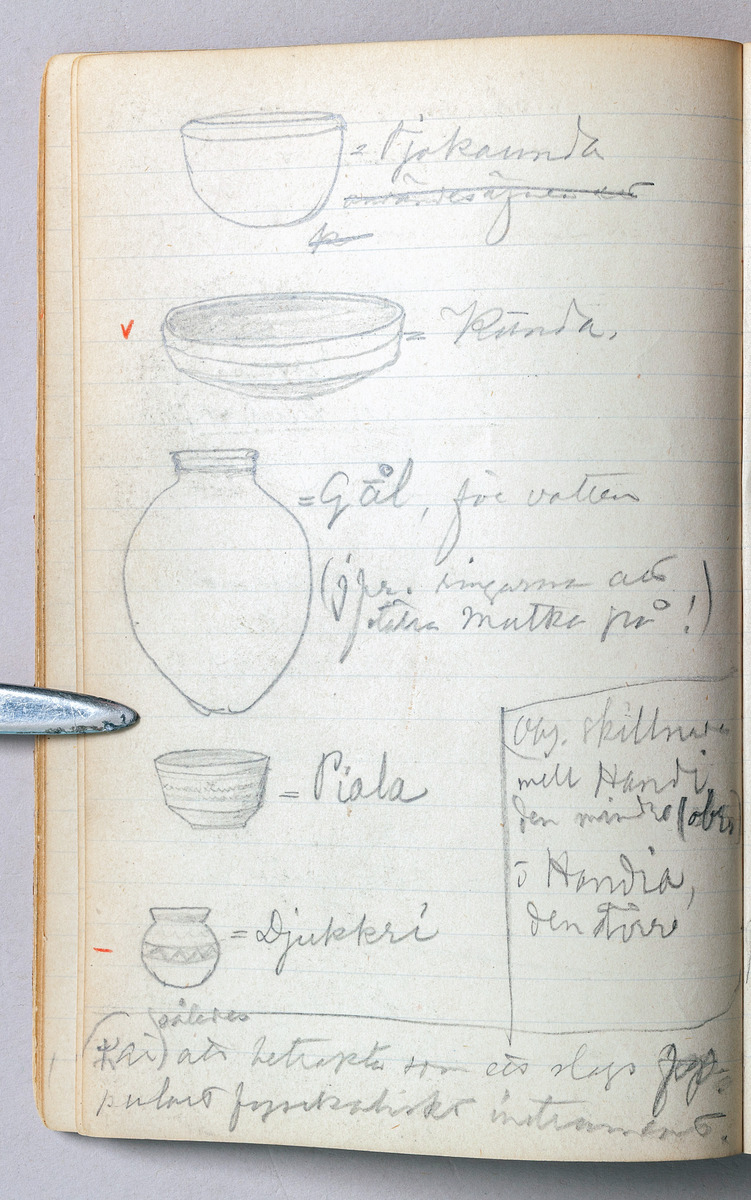 = Tjokaunda
= Kūnda.
= Gål, för vatten
(jfr. ringarna att
ställa Matka på!)
= Piala
(Obs. skillnad
mell Handi,
den mindre (obs)
o Handia,
den större
= Djukkri
således
att betrakta som ett slags
pulärt fysikaliskt instrument.